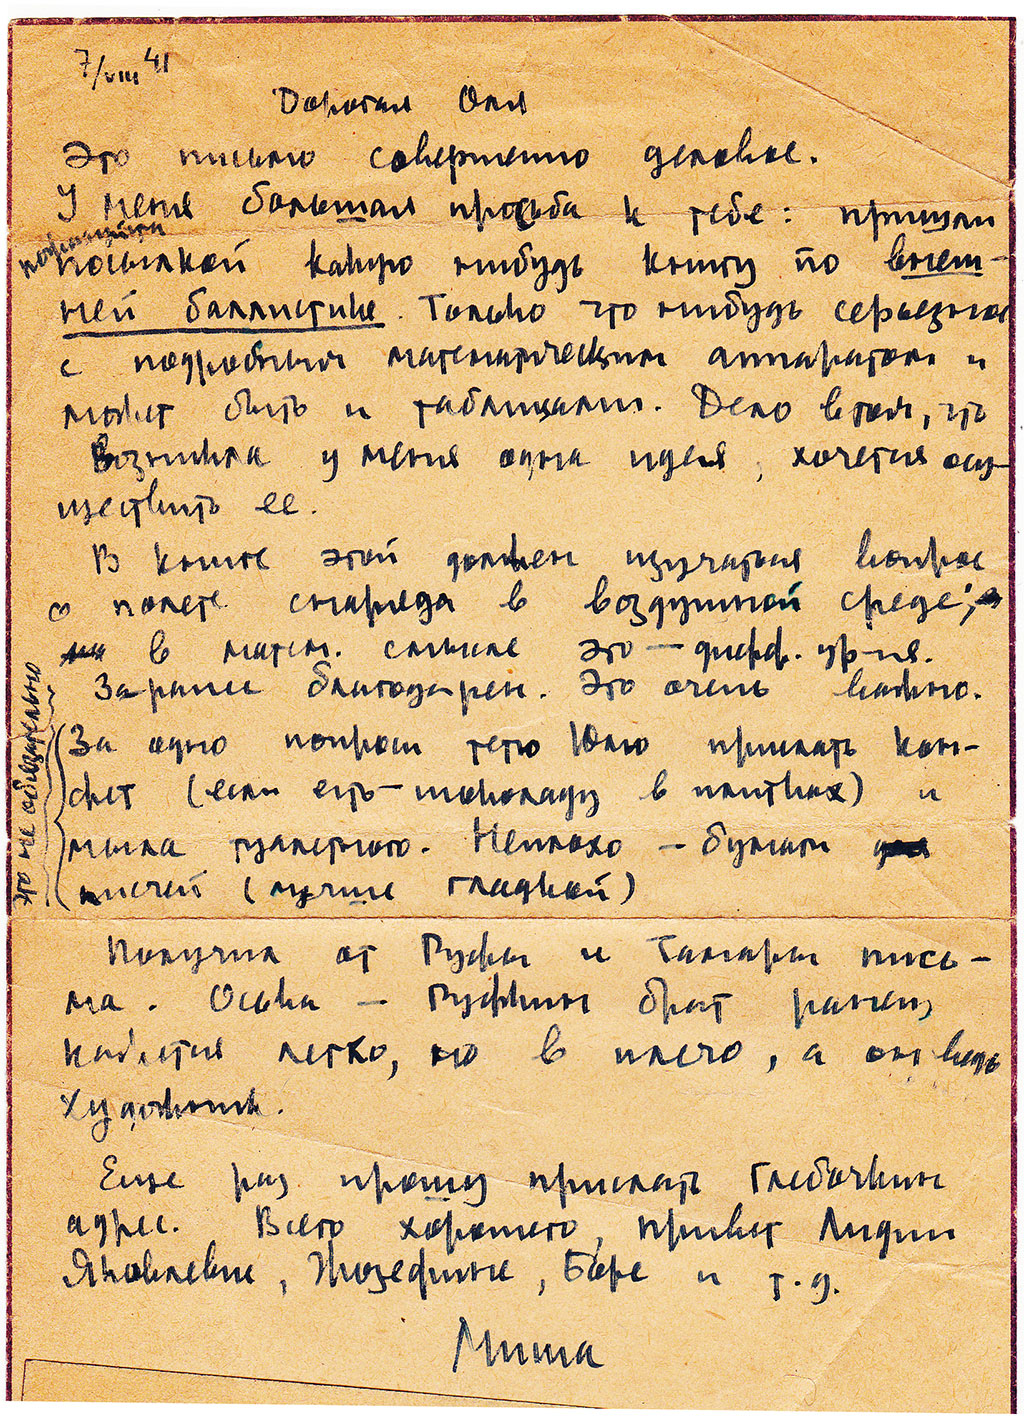 7/VIII 41
Дорогая Оля
Это письмо совершенно деловое.
У меня большая просьба к тебе: пришли
пожалуйста
посылкой какую нибудь книгу по внеш-
ней баллистике. Только что нибудь серьезное
с подробным математическим аппаратом и
может быть и таблицами. Дело в том, что
возникла у меня одна идея, хочется осу-
ществить ее.
В книге этой должен изучаться вопрос
о полете снаряда в воздушной среде;
в матем. смысле это — дифф. ур-ия.
Заранее благодарен. Это очень важно.
За одно попроси тетю Юлю прислать кон-
фет (если есть — шоколаду в плитках) и
мыла туалетного. Неплохо — бумаги
писчей (лучше гладкой)
это не обязательно
Получил от Руфы и Тамары пись-
ма. Оська — Руфкин брат ранен,
кажется легко, но в плечо, а он ведь
художник.
Еще раз прошу прислать Глебочкин
адрес. Всего хорошего, привет Лидии
Яковлевне, Жозефине, Боре и т.д.
Миша